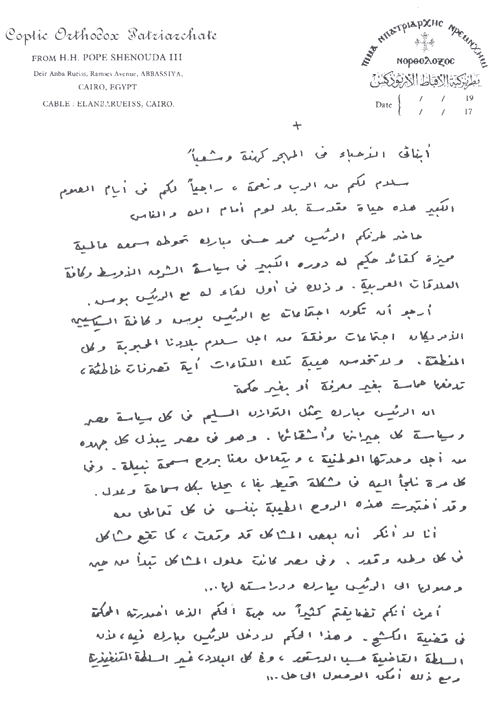 Coptic Orthodox Patriarchate
FROM H.H. POPE SHENOUDA III
Deir Anba Rueiss, Ramses Avenue, ABBASSIYA,
CAIRO, EGYPT
CABLE : ELANBARUEISS, CAIRO.
بطريركية الأقباط الأرثوذكس
Date { / / 19
/ / 17
+
أبنائى الأحباء فى المهجر كهنة وشعباً
سلام لكم من الرب ونعمة ، راجياً لكم فى أيام الصوم
الكبير هذه حياة مقدسة بلا لوم أمام الله والناس
حاضر طرفكم الرئيس محمد حسنى مبارك تحوطه سمعة عالمية
مميزة كقائد حكيم له دوره الكبير فى سياسة الشرق الأوسط وكافة
العلاقات العربية . وذلك فى أول لقاء له مع الرئيس بوش .
أرجو أن تكون اجتماعاته مع الرئيس بوش وكافة السياسيين
الأمريكان اجتماعات موفقة من أجل سلام بلادنا المحبوبة وكل
المنطقة . ولا تخدش هيبة تلك اللقاءات أية تصرفات خاطئة ،
تدفعها حماسة بغير معرفة أو بغير حكمة
ان الرئيس مبارك يمثل التوازن السليم فى كل سياسة مصر
وسياسة كل جيراننا وأشقائنا . وهو فى مصر يبذل كل جهده
من أجل وحدتها الوطنية ، ويتعامل معنا بروح سمحة نبيلة . وفى
كل مرة نلجأ اليه فى مشكلة تحيط بنا ، يحلها بكل سماحة وعدل .
وقد أختبرت هذه الروح الطيبة بنفسى فى كل تعاملى معه
أنا لا أنكر أن بعض المشاكل قد وقعت ، كما تقع مشاكل
فى كل وطن وقدر . وفى مصر كانت حلول المشاكل تبدأ من حين
وصولها الى الرئيس مبارك ودراسته لها...
أعرف أنكم تضايقتم كثيراً من جهة الحكم الذى أصدرته المحكمة
فى قضية الكشح . وهذا الحكم لا دخل للرئيس مبارك فيه ، لأن
السلطة القاضية حسب الدستور ، وفى كل البلاد ، غير السلطة التنفيذية
ومع ذلك أمكن الوصول الى حل ...